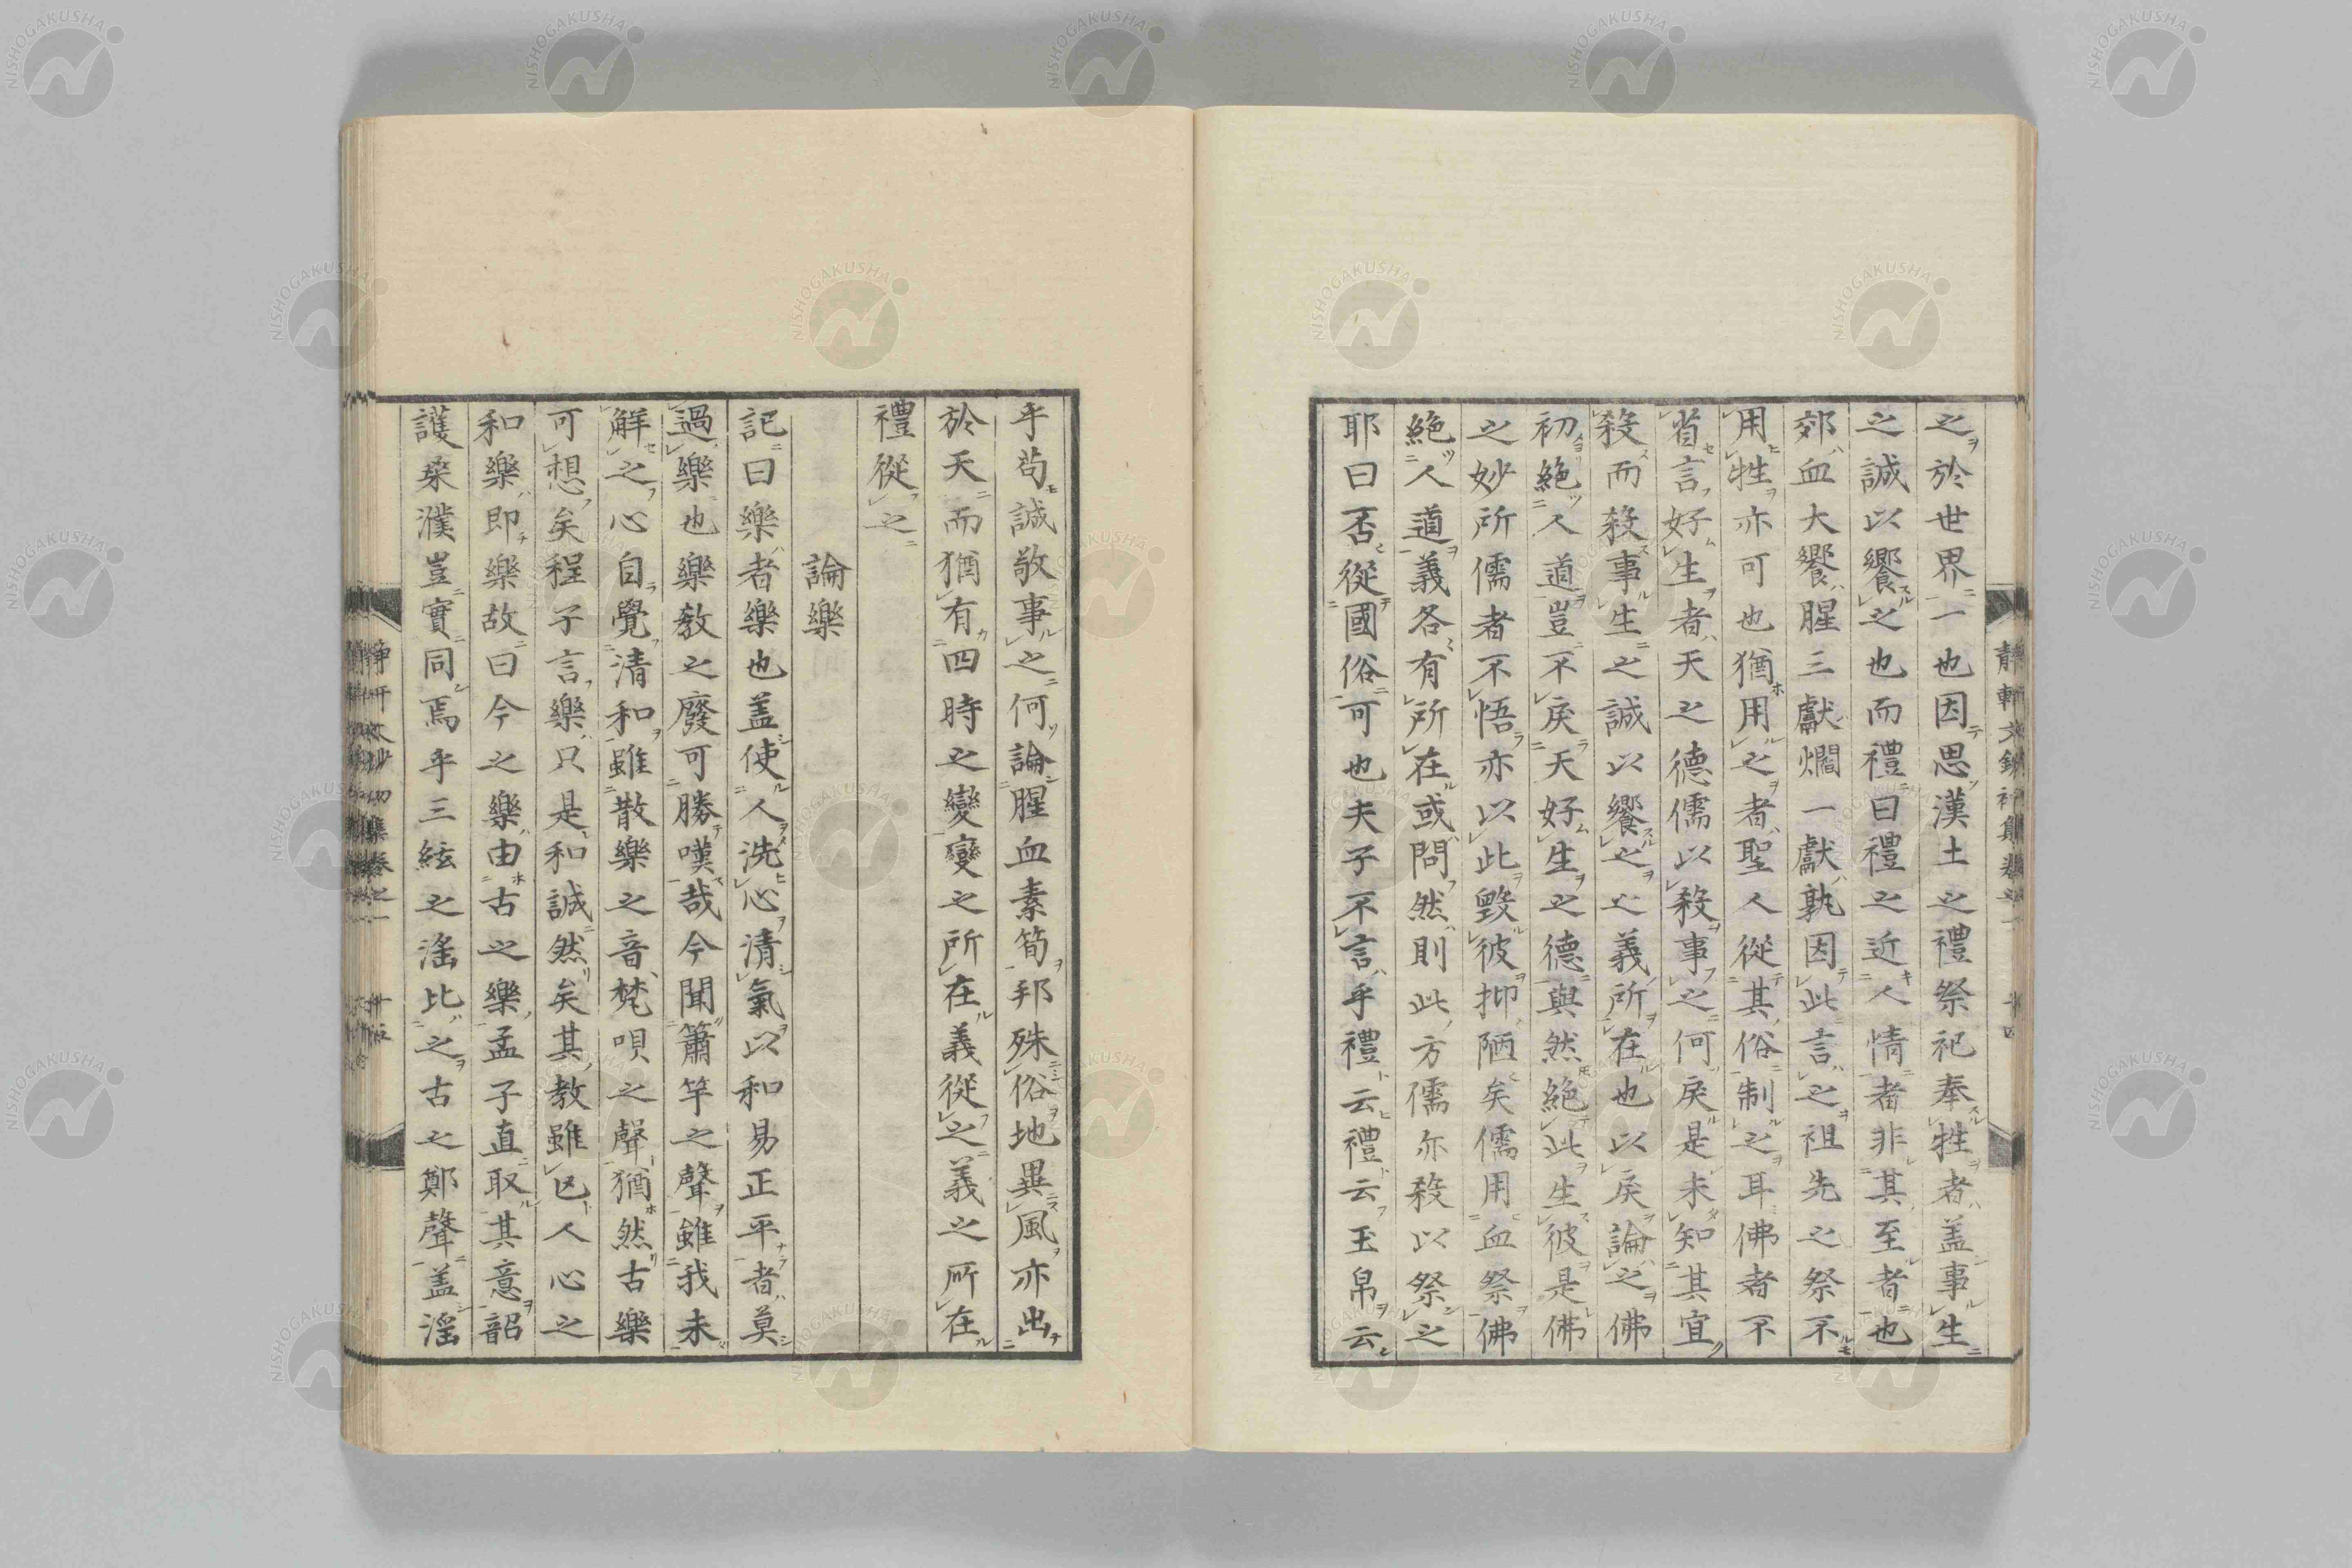 之於世界一也因思漢土之禮祭祀奉牲者盖事生
之誠以饗之也而禮曰禮之近人情者非其至者也
郊血大饗腥三獻爓一獻孰因此言之祖先之祭不
用牲亦可也猶用之者聖人從其俗制之耳佛者不
省言好生者天之德儒以殺事之何戾是未知其宜
殺而殺事生之誠以饗之之義所在也以戾論之佛
初絕人道豈不戾天好生之德與然絕此生彼是佛
之妙所儒者不悟亦以此毀彼抑陋矣儒用血祭佛
絕人道義各有所在或問然則此方儒亦殺以祭之
耶曰否從國俗可也夫子不言乎禮云禮云玉帛云
乎苟誠敬事之何論腥血素筍邦殊俗地異風亦出
於天而猶有四時之變變之所在義從之義之所在
禮從之
論樂
記曰樂者樂也盖使人洗心清氣以和易正平者莫
過樂也樂教之廢可勝嘆哉今聞簫竽之聲雖我未
解之心自覺清和雖散樂之音梵唄之聲猶然古樂
可想矣程子言樂只是和誠然矣其教雖亡人心之
和樂即樂故曰今之樂由古之樂孟子直取其意韶
護桑濮豈實同焉乎三絃之滛比之古之鄭聲盖滛
NISHOGAKUSHA